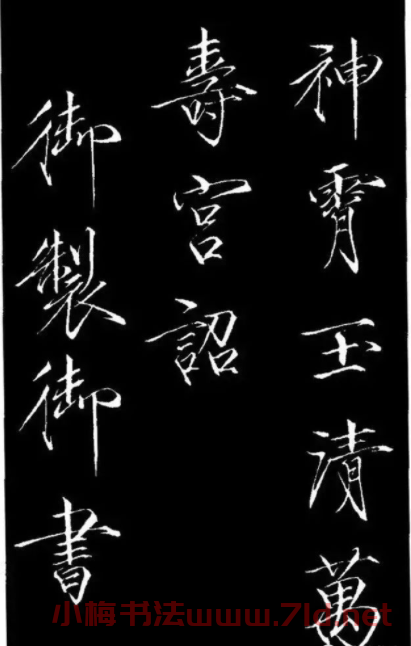 神霄玉清萬
壽宮詔
御製御書
小梅书法www.7ld.net